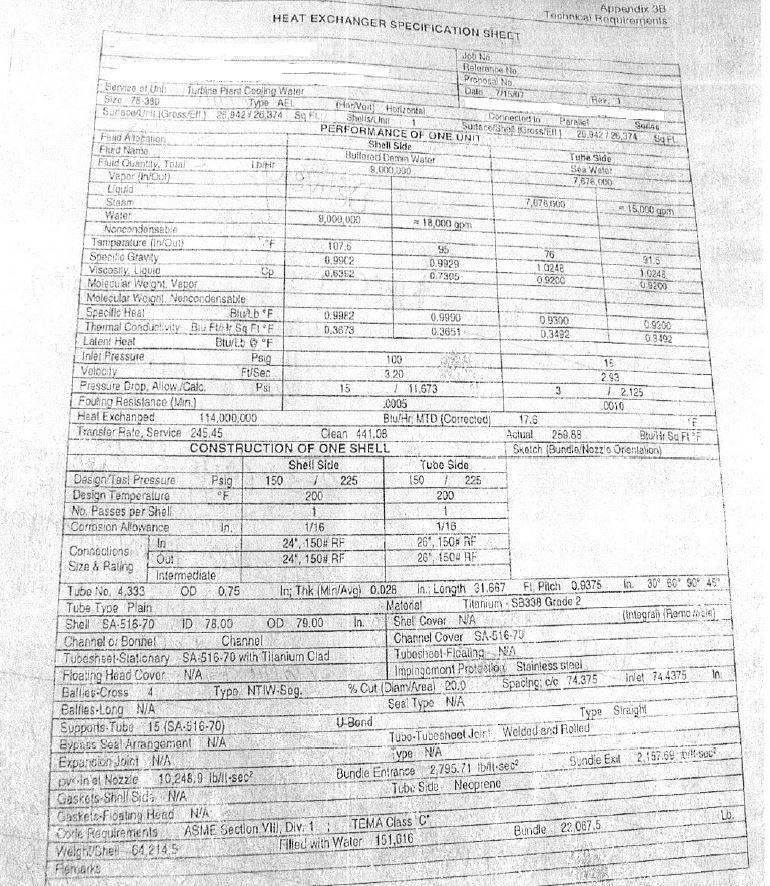 Appendix 3B
Technical Requirements
HEAT EXCHANGER SPECIFICATION SHEET
Job No.
Reference No.
Proposal No.
Date 7/15/07 Rev. 1
Service of Unit Turbine Plant Cooling Water
Size 78-380 Type AEL (Hor/Vert) Horizontal Connected in Parallel Series
Surface/Unit (Gross/Eff.) 26,942 / 26,374 Sq Ft. Shells/Unit 1 Surface/Shell (Gross/Eff.) 26,942 / 26,374 Sq Ft.
PERFORMANCE OF ONE UNIT
Fluid Allocation Shell Side Tube Side
Fluid Name Buffered Demin Water Sea Water
Fluid Quantity, Total Lb/Hr 9,000,000 7,676,000
Vapor (In/Out)
Liquid 7,676,000 = 15,000 gpm
Steam
Water 9,000,000 = 18,000 gpm
Noncondensable
Temperature (In/Out) °F 107.6 95 76 91.5
Specific Gravity 0.9902 0.9929 1.0248 1.0248
Viscosity, Liquid Cp 0.6352 0.7305 0.9200 0.9200
Molecular Weight, Vapor
Molecular Weight, Noncondensable
Specific Heat Btu/Lb °F 0.9982 0.9990 0.9300 0.9300
Thermal Conductivity Btu Ft/Hr Sq Ft °F 0.3673 0.3651 0.3492 0.3492
Latent Heat Btu/Lb @ °F
Inlet Pressure Psig 100 15
Velocity Ft/Sec 3.20 2.93
Pressure Drop, Allow./Calc. Psi 15 / 11.573 3 / 2.125
Fouling Resistance (Min.) .0005 .0010
Heat Exchanged 114,000,000 Btu/Hr; MTD (Corrected) 17.6 °F
Transfer Rate, Service 245.45 Clean 441.08 Actual 259.88 Btu/Hr Sq Ft °F
CONSTRUCTION OF ONE SHELL Sketch (Bundle/Nozzle Orientation)
Shell Side Tube Side
Design/Test Pressure Psig 150 / 225 150 / 225
Design Temperature °F 200 200
No. Passes per Shell 1 1
Corrosion Allowance In. 1/16 1/16
Connections Size & Rating
In 24", 150# RF 26", 150# RF
Out 24", 150# RF 26", 150# RF
Intermediate
Tube No. 4,333 OD 0.75 In; Thk (Min/Avg) 0.028 In.; Length 31.667 Ft; Pitch 0.9375 In. 30° 60° 90° 45°
Tube Type Plain Material Titanium - SB338 Grade 2
Shell SA-516-70 ID 78.00 OD 79.00 In. Shell Cover N/A (Integral) (Removable)
Channel or Bonnet Channel Channel Cover SA-516-70
Tubesheet-Stationary SA-516-70 with Titanium Clad Tubesheet-Floating N/A
Floating Head Cover N/A Impingement Protection Stainless steel
Baffles-Cross 4 Type NTIW-Seg. % Cut (Diam/Area) 20.0 Spacing; c/c 74.375 Inlet 74.4375 In.
Baffles-Long N/A Seal Type N/A
Supports-Tube 15 (SA-516-70) U-Bend Type Straight
Bypass Seal Arrangement N/A Tube-Tubesheet Joint Welded and Rolled
Expansion Joint N/A Type N/A
ρv²-Inlet Nozzle 10,248.9 lb/ft-sec² Bundle Entrance 2,795.71 lb/ft-sec² Bundle Exit 2,157.69 lb/ft-sec²
Gaskets-Shell Side N/A Tube Side Neoprene
Gaskets-Floating Head N/A
Code Requirements ASME Section VIII, Div. 1 ; TEMA Class "C"
Weight/Shell 64,214.5 Filled with Water 151,616 Bundle 22,067.5 Lb.
Remarks